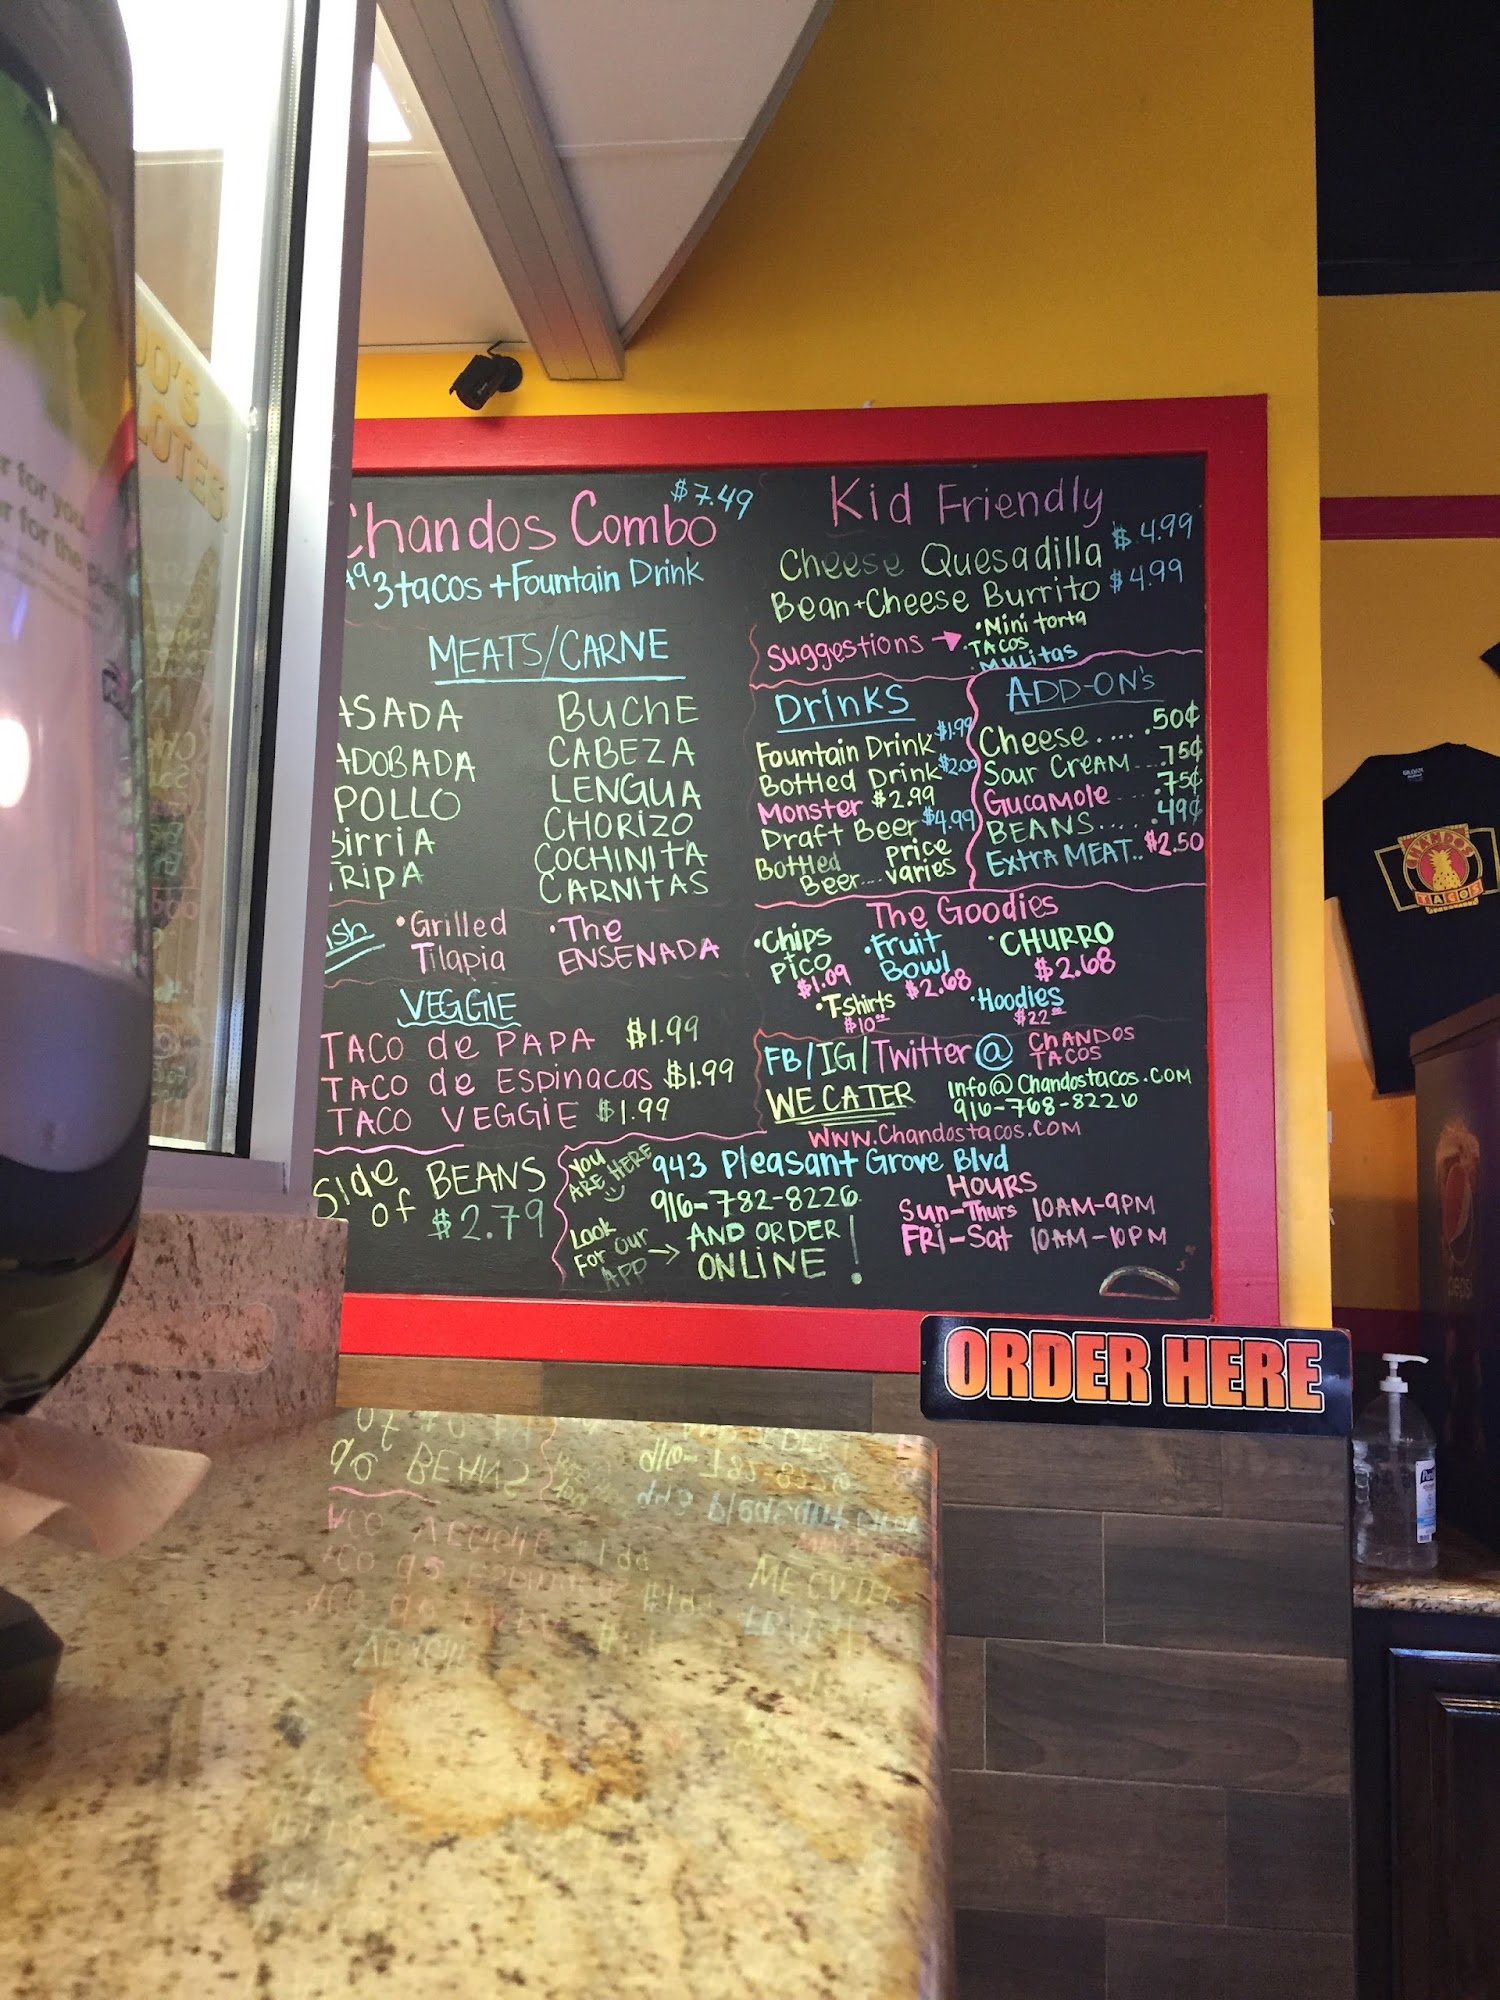 Chandos Combo $7.49
3 tacos + Fountain Drink
MEATS/CARNE
ASADA
ADOBADA
POLLO
BirriA
TRIPA
BUCHE
CABEZA
LENGUA
CHORIZO
COCHINITA
CARNITAS
• Grilled Tilapia
• The ENSENADA
VEGGIE
TACO de PAPA $1.99
TACO de ESPINACAS $1.99
TACO VEGGIE $1.99
Side of BEANS
$2.79
Kid Friendly
Cheese Quesadilla $4.99
Bean + Cheese Burrito $4.99
Suggestions
• Mini torta
• TACOS
• MULitas
DrinKS
Fountain Drink $1.99
Bottled Drink $2.00
Monster $2.99
Draft Beer $4.99
Bottled Beer.... price varies
ADD-ON's
Cheese..... .50¢
Sour CreAM.... .75¢
Gucamole .... .75¢
BEANS.... .49¢
ExtrA MEAT.. $2.50
The Goodies
• Chips + Pico $1.09
• Fruit Bowl $2.68
• CHURRO $2.68
• T-shirts $10.00
• Hoodies $22.00
FB/IG/Twitter@ CHANDOS TACOS
WE CATER
Info@Chandostacos.com
916-768-8226
www.Chandostacos.com
You ARE HERE
943 Pleasant Grove Blvd
916-782-8226
Look For our APP
AND ORDER ONLINE!
HOURS
Sun-Thurs 10AM-9PM
FRI-Sat 10AM-10PM
ORDER HERE
CHANDOS
TACOS
GILDAN
pepsi